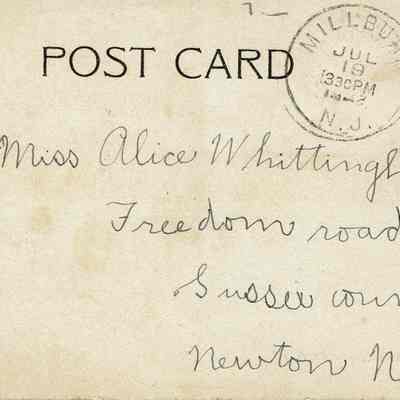 POST CARD
MILLBUR
JUL
19
1330PM
N.J.
Miss Alice Whittingh
Freedom road
Sussex coun
Newton N